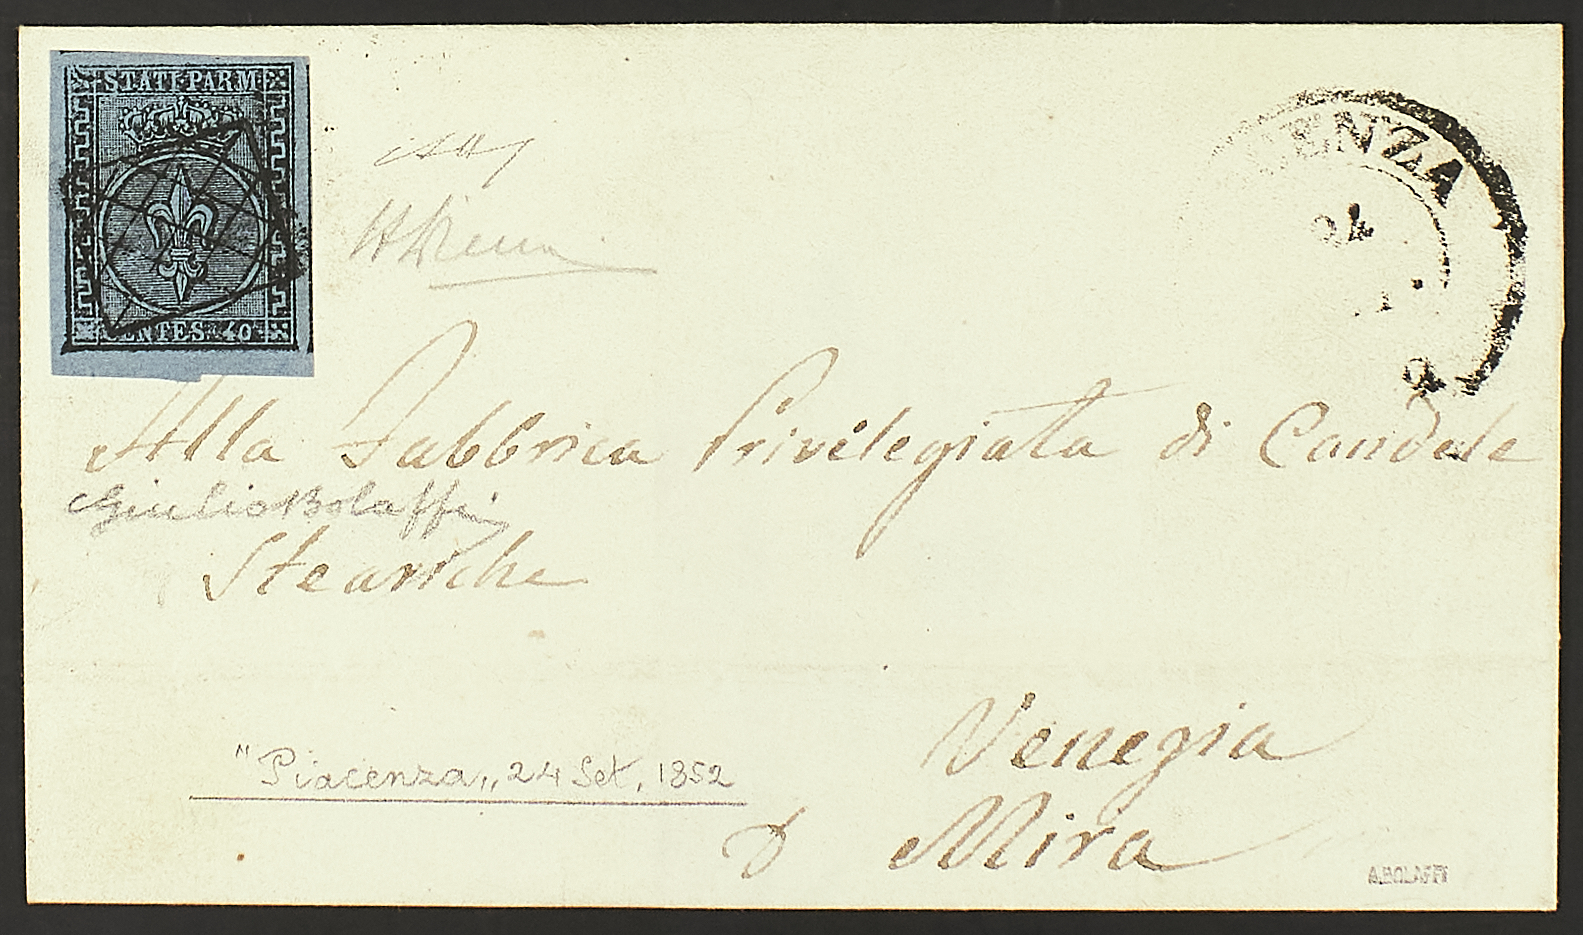 STATI PARM
CENTES. 40
ENZA
24
Alla Fabbrica Privilegiata di Candele
Giulio Bolaffi
Steariche
Venezia
"Piacenza" 24 Set. 1852
Mira
A. BOLAFFI